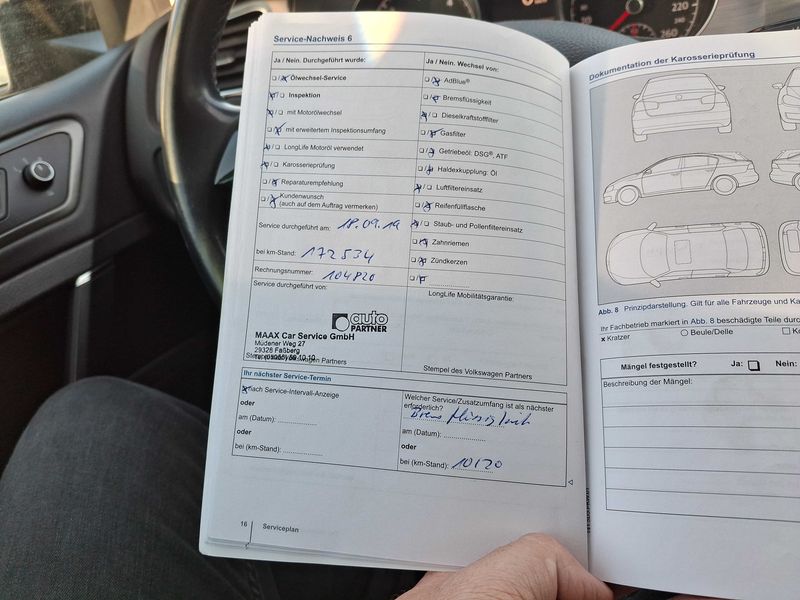 Service-Nachweis 6
Ja / Nein. Durchgeführt wurde:
Ölwechsel-Service
Inspektion
mit Motorölwechsel
mit erweitertem Inspektionsumfang
LongLife Motoröl verwendet
Karosserieprüfung
Reparaturempfehlung
Kundenwunsch
(auch auf dem Auftrag vermerken)
Service durchgeführt am: 18.09.19
bei km-Stand: 172534
Rechnungsnummer: 104820
Service durchgeführt von:
auto
PARTNER
MAAX Car Service GmbH
Müdener Weg 27
29328 Faßberg
Ja / Nein. Wechsel von:
AdBlue®
Bremsflüssigkeit
Dieselkraftstofffilter
Gasfilter
Getriebeöl: DSG®, ATF
Haldexkupplung: Öl
Luftfiltereinsatz
Reifenfüllflasche
Staub- und Pollenfiltereinsatz
Zahnriemen
Zündkerzen
LongLife Mobilitätsgarantie:
Stempel des Volkswagen Partners
Ihr nächster Service-Termin
nach Service-Intervall-Anzeige
oder
am (Datum):
oder
bei (km-Stand):
Welcher Service/Zusatzumfang ist als nächster
erforderlich?
Bremsflüssigkeit
am (Datum):
oder
bei (km-Stand): 10/20
16
Serviceplan
Dokumentation der Karosserieprüfung
Abb. 8 Prinzipdarstellung. Gilt für alle Fahrzeuge und
Ihr Fachbetrieb markiert in Abb. 8 beschädigte Teile
x Kratzer
Beule/Delle
Mängel festgestellt? Ja: Nein:
Beschreibung der Mängel:
220
260